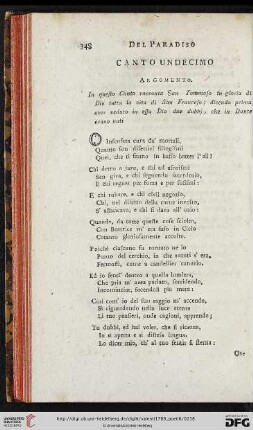 348
DEL PARADISO
CANTO UNDECIMO
ARGOMENTO.
In questo Canto racconta San Tommaso in gloria di
Dio tutta la vita di San Francesco; dicendo prima
aver veduto in esso Dio due dubbj, che in Dante
erano nati
O Insensata cura de' mortali,
Quanto son difettivi sillogismi
Quei, che ti fanno in basso batter l'ali!
Chi dietro a jura, e chi ad aforismi
Sen giva, e chi seguendo sacerdozio,
E chi regnar per forza e per sofismi:
E chi rubare, e chi civil negozio,
Chi, nel diletto della carne involto,
S' affaticava, e chi si dava all' ozio:
Quando, da tutte queste cose sciolto,
Con Beatrice m' era suso in Cielo
Cotanto gloriosamente accolto.
Poichè ciascuno fu tornato ne lo
Punto del cerchio, in che avanti s' era,
Fermossi, come a candellier candelo.
Ed io senti' dentro a quella lumiera,
Che pria m' avea parlato, sorridendo,
Incominciar, facendosi più mera:
Così com' io del suo raggio m' accendo,
Sì riguardando nella luce eterna
Li tuo' pensieri, onde cagioni, apprendo;
Tu dubbi, ed hai voler, che si ricerna,
In sì aperta e sì distesa lingua,
Lo dicer mio, ch' al tuo sentir si sterna:
Ove
http://digi.ub.uni-heidelberg.de/diglit/
© Universitätsbibliothek Heidelberg